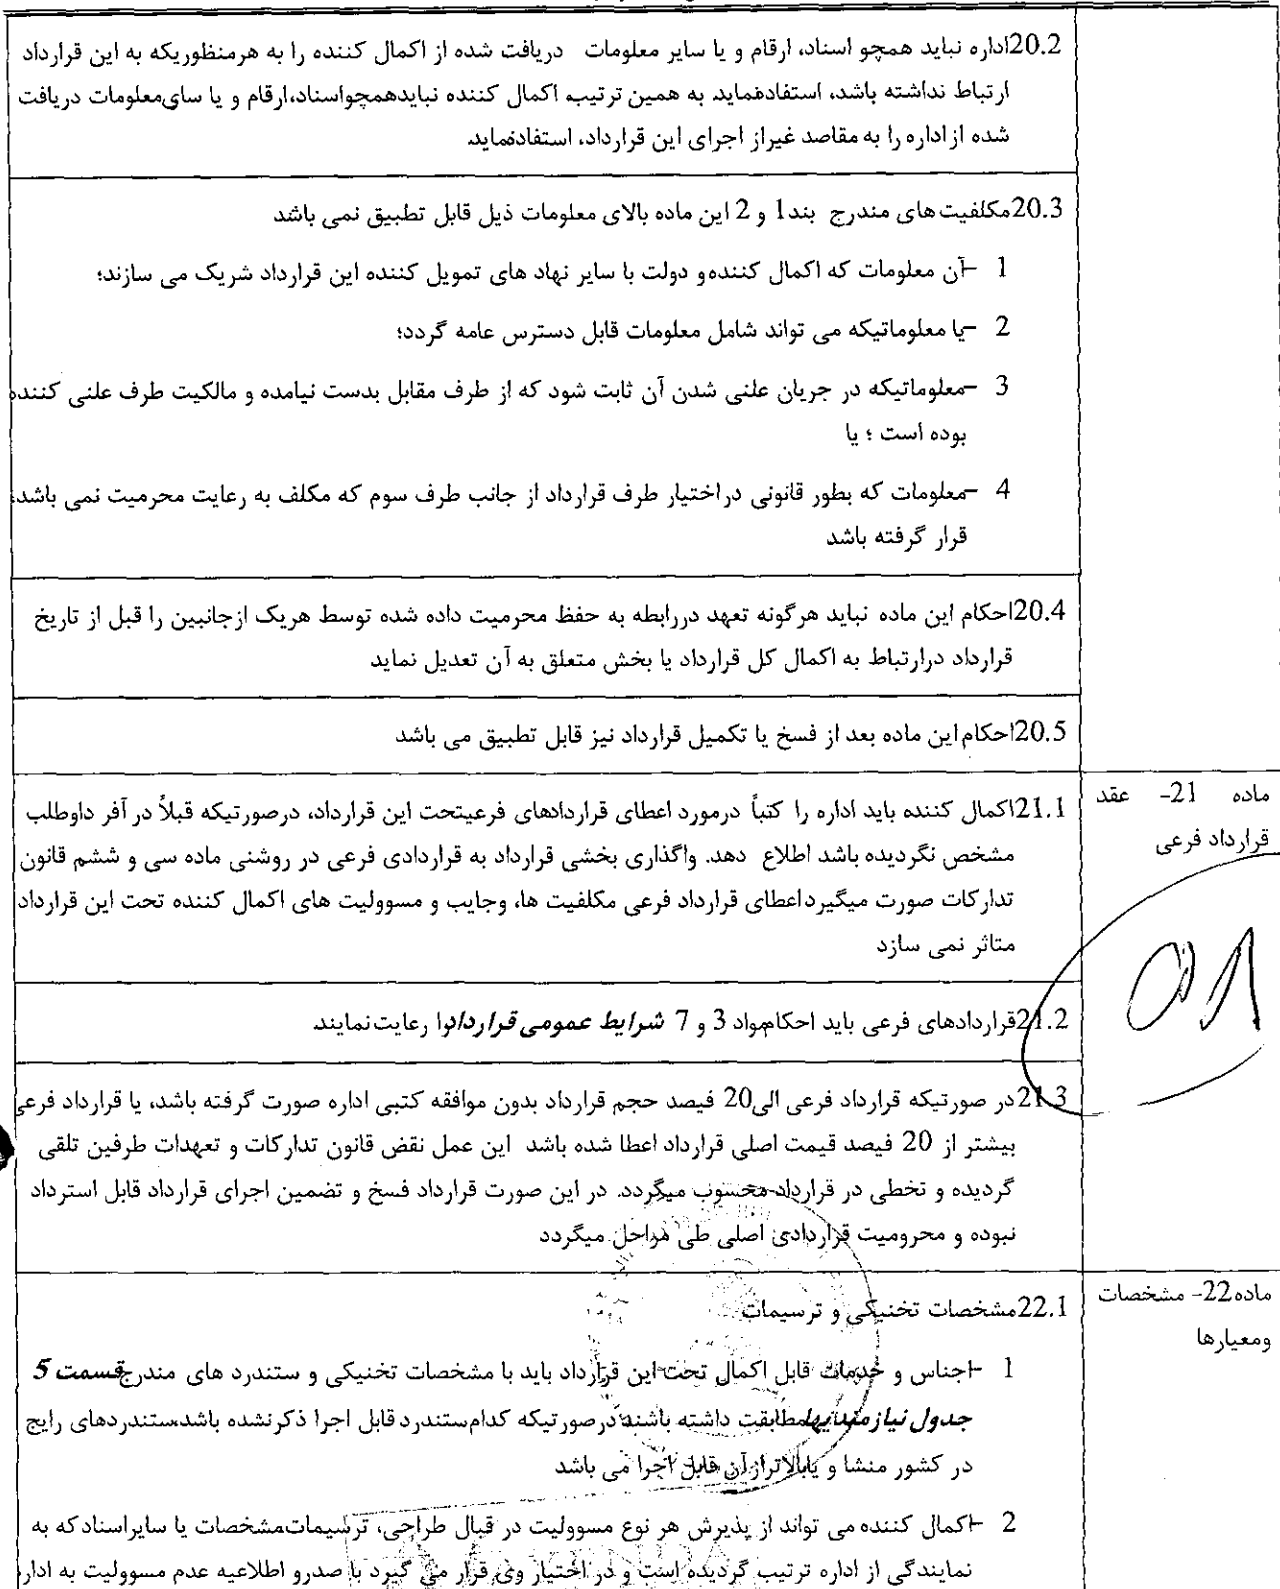 20.2اداره نباید همچو اسناد، ارقام و یا سایر معلومات دریافت شده از اکمال کننده را به هرمنظوریکه به این قرارداد
ارتباط نداشته باشد، استفادهنماید. به همین ترتیب اکمال کننده نبایدهمچواسناد،ارقام و یا سایمعلومات دریافت
شده ازاداره را به مقاصد غیراز اجرای این قرارداد، استفادهنماید
20.3مکلفیت های مندرج بند1 و 2 این ماده بالای معلومات ذیل قابل تطبیق نمی باشد
1 –آن معلومات که اکمال کننده و دولت با سایر نهاد های تمویل کننده این قرارداد شریک می سازند؛
2 –یا معلوماتیکه می تواند شامل معلومات قابل دسترس عامه گردد؛
3 –معلوماتیکه در جریان علنی شدن آن ثابت شود که از طرف مقابل بدست نیامده و مالکیت طرف علنی کننده
بوده است ؛ یا
4 –معلومات که بطور قانونی دراختیار طرف قرارداد از جانب طرف سوم که مکلف به رعایت محرمیت نمی باشد،
قرار گرفته باشد
20.4احکام این ماده نباید هرگونه تعهد دررابطه به حفظ محرمیت داده شده توسط هریک ازجانبین را قبل از تاریخ
قرارداد درارتباط به اکمال کل قرارداد یا بخش متعلق به آن تعدیل نماید
20.5احکام این ماده بعد از فسخ یا تکمیل قرارداد نیز قابل تطبیق می باشد
ماده 21- عقد
قرارداد فرعی
21.1اکمال کننده باید اداره را کتباً درمورد اعطای قراردادهای فرعیتحت این قرارداد، درصورتیکه قبلاً در آفر داوطلب
مشخص نگردیده باشد اطلاع دهد. واگذاری بخشی قرارداد به قراردادی فرعی در روشنی ماده سی و ششم قانون
تدارکات صورت میگیرد اعطای قرارداد فرعی مکلفیت ها، وجایب و مسوولیت های اکمال کننده تحت این قرارداد
متاثر نمی سازد
21.2قراردادهای فرعی باید احکامواد 3 و 7 شرایط عمومی قراردادرا رعایت نمایند
21.3در صورتیکه قرارداد فرعی الی20 فیصد حجم قرارداد بدون موافقه کتبی اداره صورت گرفته باشد، یا قرارداد فرعی
بیشتر از 20 فیصد قیمت اصلی قرارداد اعطا شده باشد این عمل نقض قانون تدارکات و تعهدات طرفین تلقی
گردیده و تخطی در قرارداد محسوب میگردد. در این صورت قرارداد فسخ و تضمین اجرای قرارداد قابل استرداد
نبوده و محرومیت قراردادی اصلی طی مراحل میگردد
ماده22- مشخصات
ومعیارها
22.1مشخصات تخنیکی و ترسیمات
1 –اجناس و خدمات قابل اکمال تحت این قرارداد باید با مشخصات تخنیکی و ستندرد های مندرج قسمت 5
جدول نیازمندیها مطابقت داشته باشند درصورتیکه کدام ستندرد قابل اجرا ذکرنشده باشد ستندردهای رایج
در کشور منشا و یابالاترازآن قابل اجرا می باشد
2 –اکمال کننده می تواند از پذیرش هر نوع مسوولیت در قبال طراحی، ترسیمات مشخصات یا سایراسناد که به
نمایندگی از اداره ترتیب گردیده است و در اختیار وی قرار می گیرد با صدرو اطلاعیه عدم مسوولیت به اداره